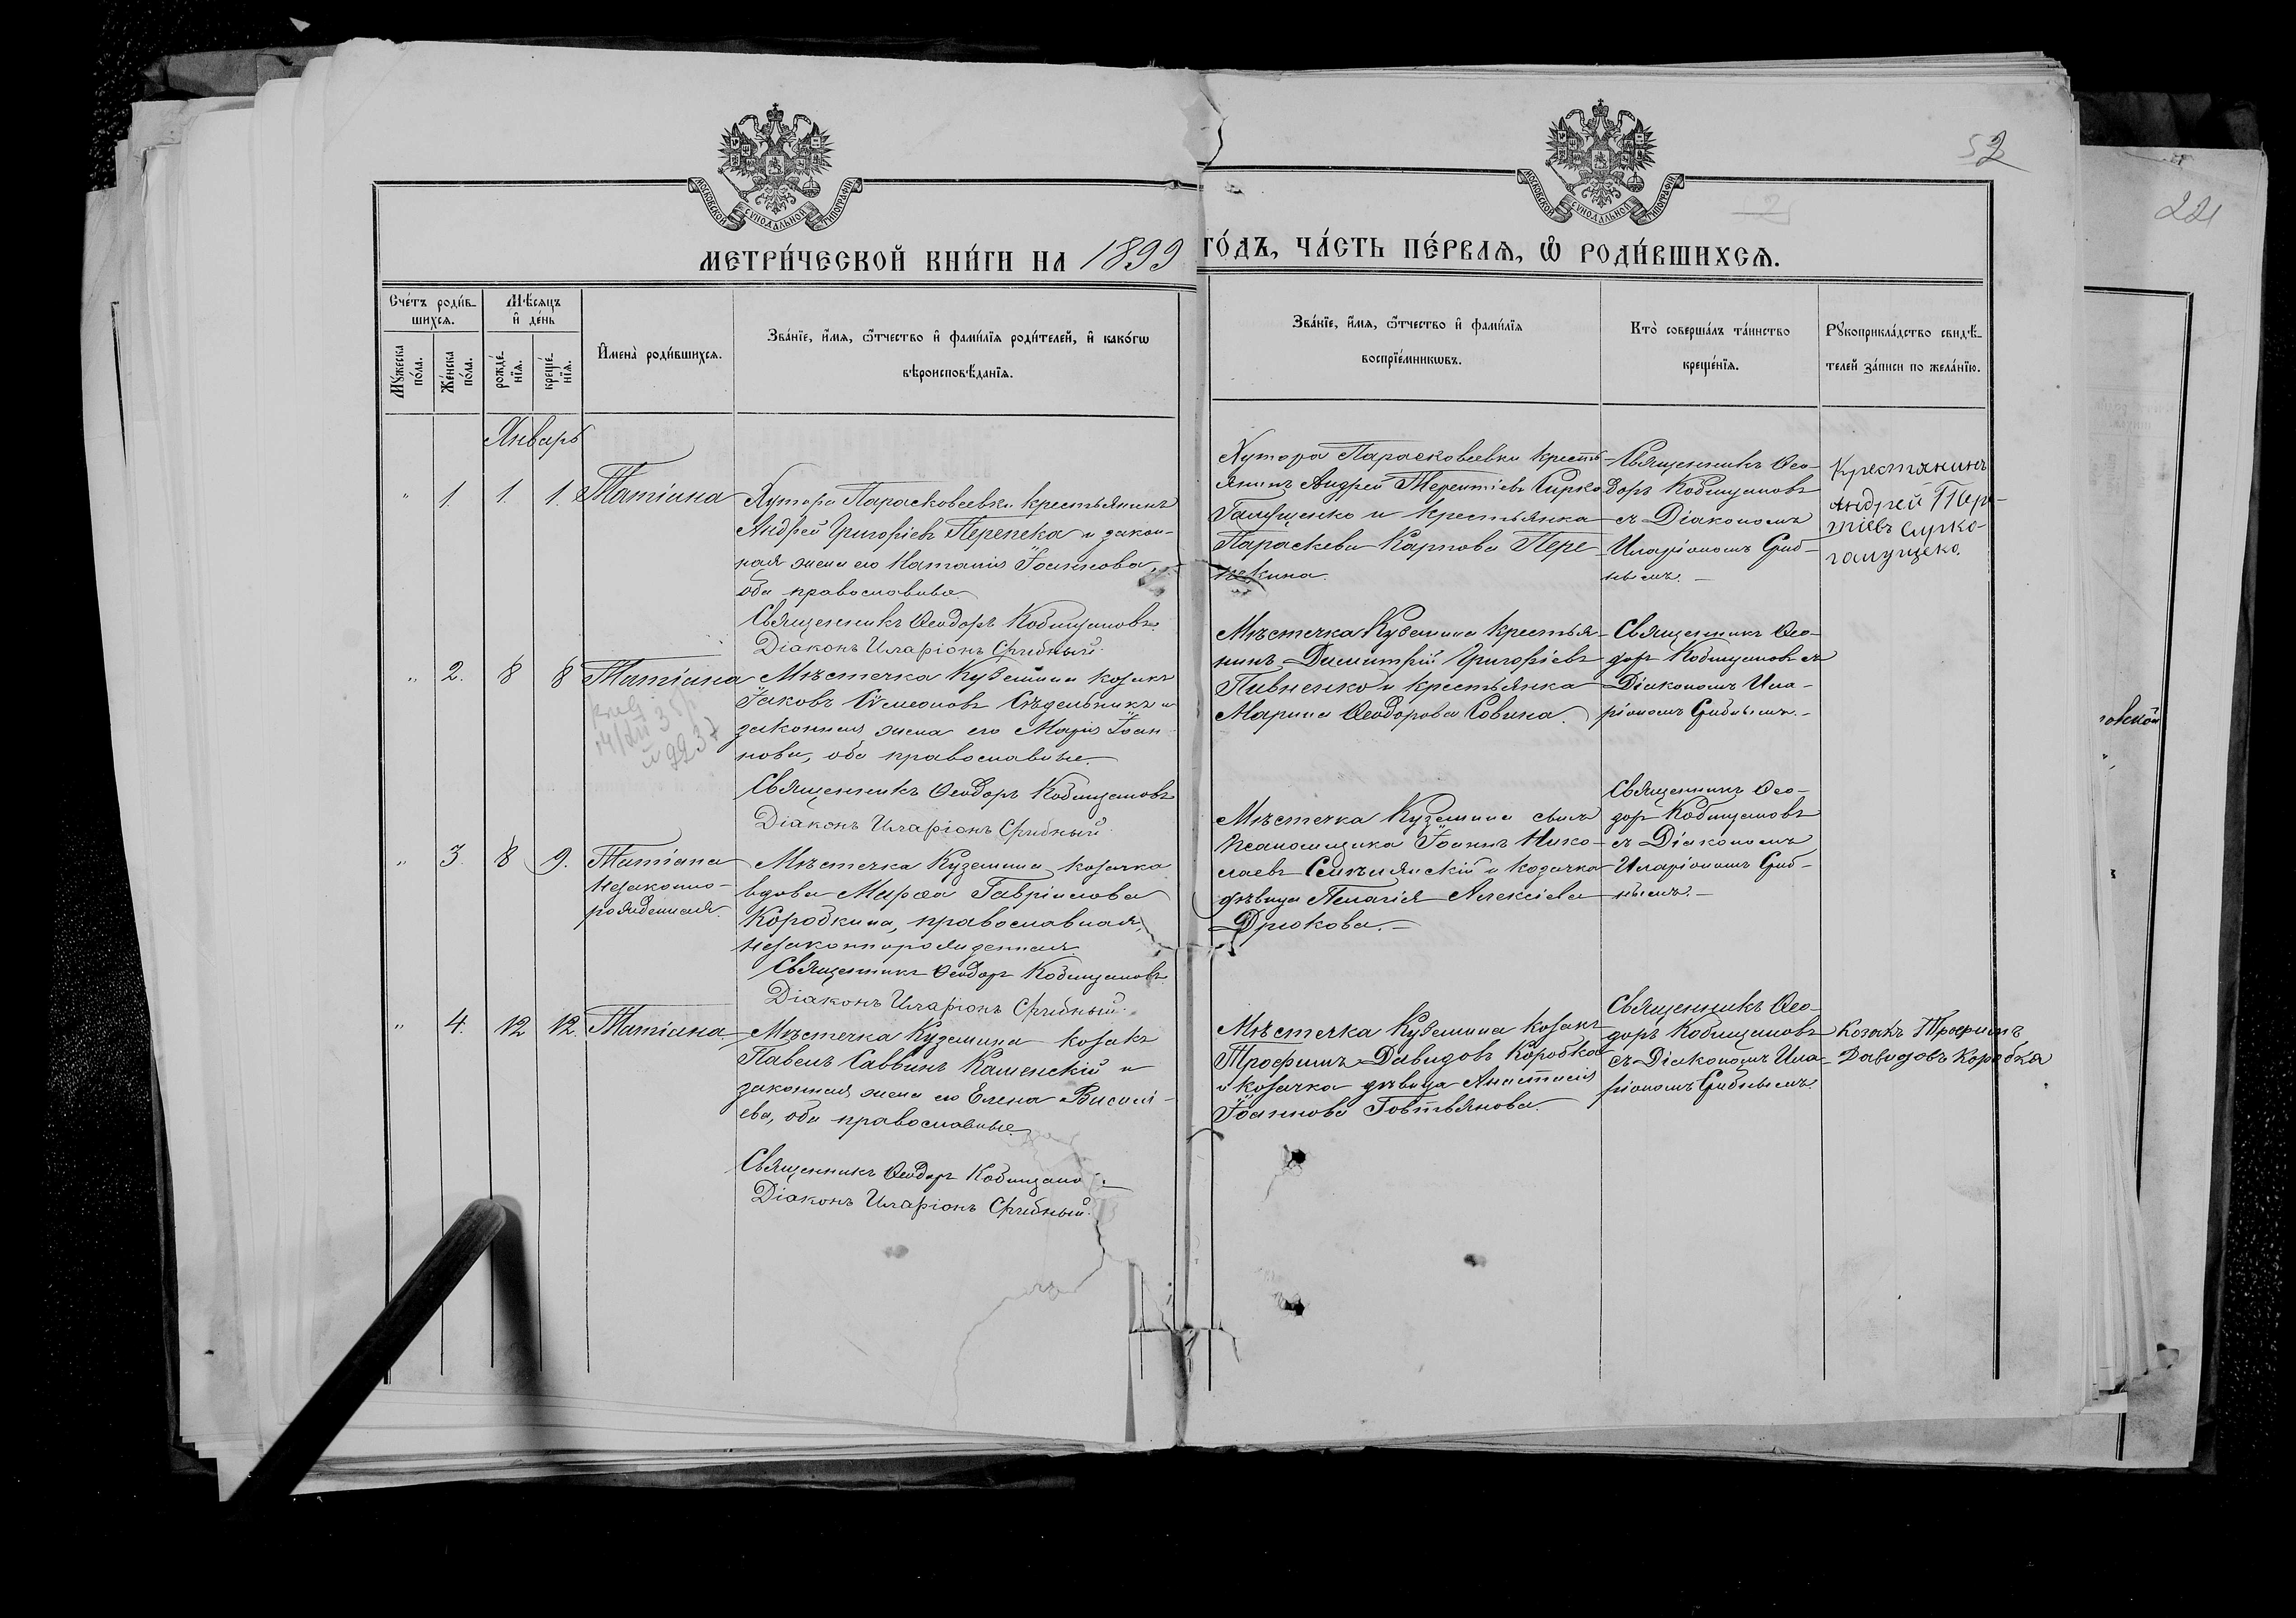 52
221
МОСКОВСКОЙ СѴНОДАЛЬНОЙ ТИПОГРАФІИ
МОСКОВСКОЙ СѴНОДАЛЬНОЙ ТИПОГРАФІИ
МЕТРИ́ЧЕСКОЙ КНИ́ГИ НА 1899 ГО́ДЪ, ЧА́СТЬ ПЕ́РВАЯ, Ѡ҆ РОДИ́ВШИХСЯ.
Сче́тъ роди́в-
шихся.
Мѣ́сяцъ
и҆ де́нь
Мꙋ́жеска
по́ла.
Же́нска
по́ла.
рожде́-
нїя.
креще́-
нїя.
И҆мена̀ роди́вшихся.
Зва́нїе, и҆́мя, ѻ҆́тчество и҆ фамѝлїя роди́телей, и҆ како́гѡ
вѣроисповѣ́данїя.
Зва́нїе, и҆́мя, ѻ҆́тчество и҆ фамѝлїя
воспрїе́мникѡвъ.
Кто̀ соверша́лъ та́инство
креще́нїя.
Рꙋкоприкла́дство свидѣ́-
телей за́писи по жела́нїю.
Январь
" 1. 1 1. Татіана
Хутора Парасковеевки крестьянинъ
Андрей Григоріевъ Перепека и закон-
ная жена его Наталія Іоаннова,
оба православные
Священникъ Ѳеодоръ Кобищановъ.
Діаконъ Иларіонъ Срибный.
Хутора Парасковеевки кресть-
янинъ Андрей Терентіевъ Сирко
Галущенко и крестьянка
Параскева Карпова Пере-
пекина.
Священникъ Ѳео-
доръ Кобищановъ
съ Діакономъ
Иларіономъ Сриб-
нымъ. —
Крестянинъ
Андрей Тере-
тіевъ Сирко-
галущеко.
" 2. 8 8 Татіана
Мѣстечка Куземина козакъ
Іаковъ Сѵмеоновъ Сѣдельникъ и
законная жена его Марія Іоан-
нова, оба православные.
Священникъ Ѳеодоръ Кобищановъ
Діаконъ Иларіонъ Срибный.
Мѣстечка Куземина крестья-
нинъ Димитрій Григоріевъ
Пивненко и крестьянка
Марина Ѳеодорова Совина.
Священникъ Ѳео-
доръ Кобищановъ съ
Діакономъ Ила-
ріономъ Срибнымъ. —
" 3. 8 9. Татіана
незаконно-
рожденная.
Мѣстечка Куземина козачка
вдова Марѳа Гавріилова
Коробкина, православная,
незаконнорожденная
Священникъ Ѳеодоръ Кобищановъ.
Діаконъ Иларіонъ Срибный.
Мѣстечка Куземина сынъ
псаломщика Іоаннъ Нико-
лаевъ и козачка
дѣвица Пелагія Алексіева
Дрюкова. —
Священникъ Ѳео-
доръ Кобищановъ
съ Діакономъ
Иларіономъ Сриб-
нымъ. —
" 4. 12 12. Татіана.
Мѣстечка Куземина козакъ
Павелъ Саввинъ Каменскій и
законная жена его Елена Василі-
ева, оба православные.
Священникъ Ѳеодоръ Кобищано
Діаконъ Иларіонъ Срибный.
Мѣстечка Куземина козакъ
Трофимъ Давидовъ Коробка
и козачка дѣвица Анастасія
Іоаннова Говтвянова.
Священникъ Ѳео-
доръ Кобищановъ
съ Діакономъ Ила-
ріономъ Срибнымъ.
Козакъ Трофимъ
Давидовъ Коробка